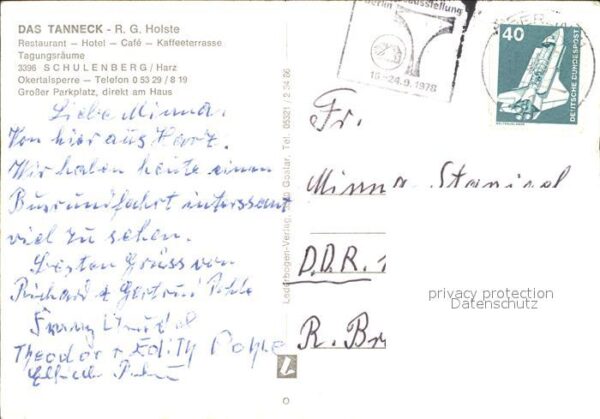 DAS TANNECK - R. G. Holste
Restaurant — Hotel — Café — Kaffeeterrasse
Tagungsräume
3396 SCHULENBERG / Harz
Okertalsperre — Telefon 0 53 29 / 8 19
Großer Parkplatz, direkt am Haus
Liebe Minna.
Von hier aus Harz.
Wir haben heute einen
Busrundfahrt interssant
viel zu sehen.
Besten Grüss von
Richard & Gertrud
Theodor + Edith
Lederbogen-Verlag, Goslar, Tel. 05321 / 2 34 66
Berlin
18-24.9.1978
40
DEUTSCHE BUNDESPOST
Fr.
Minna Stanisal
D.D.R. 1
R. Br
privacy protection
Datenschutz